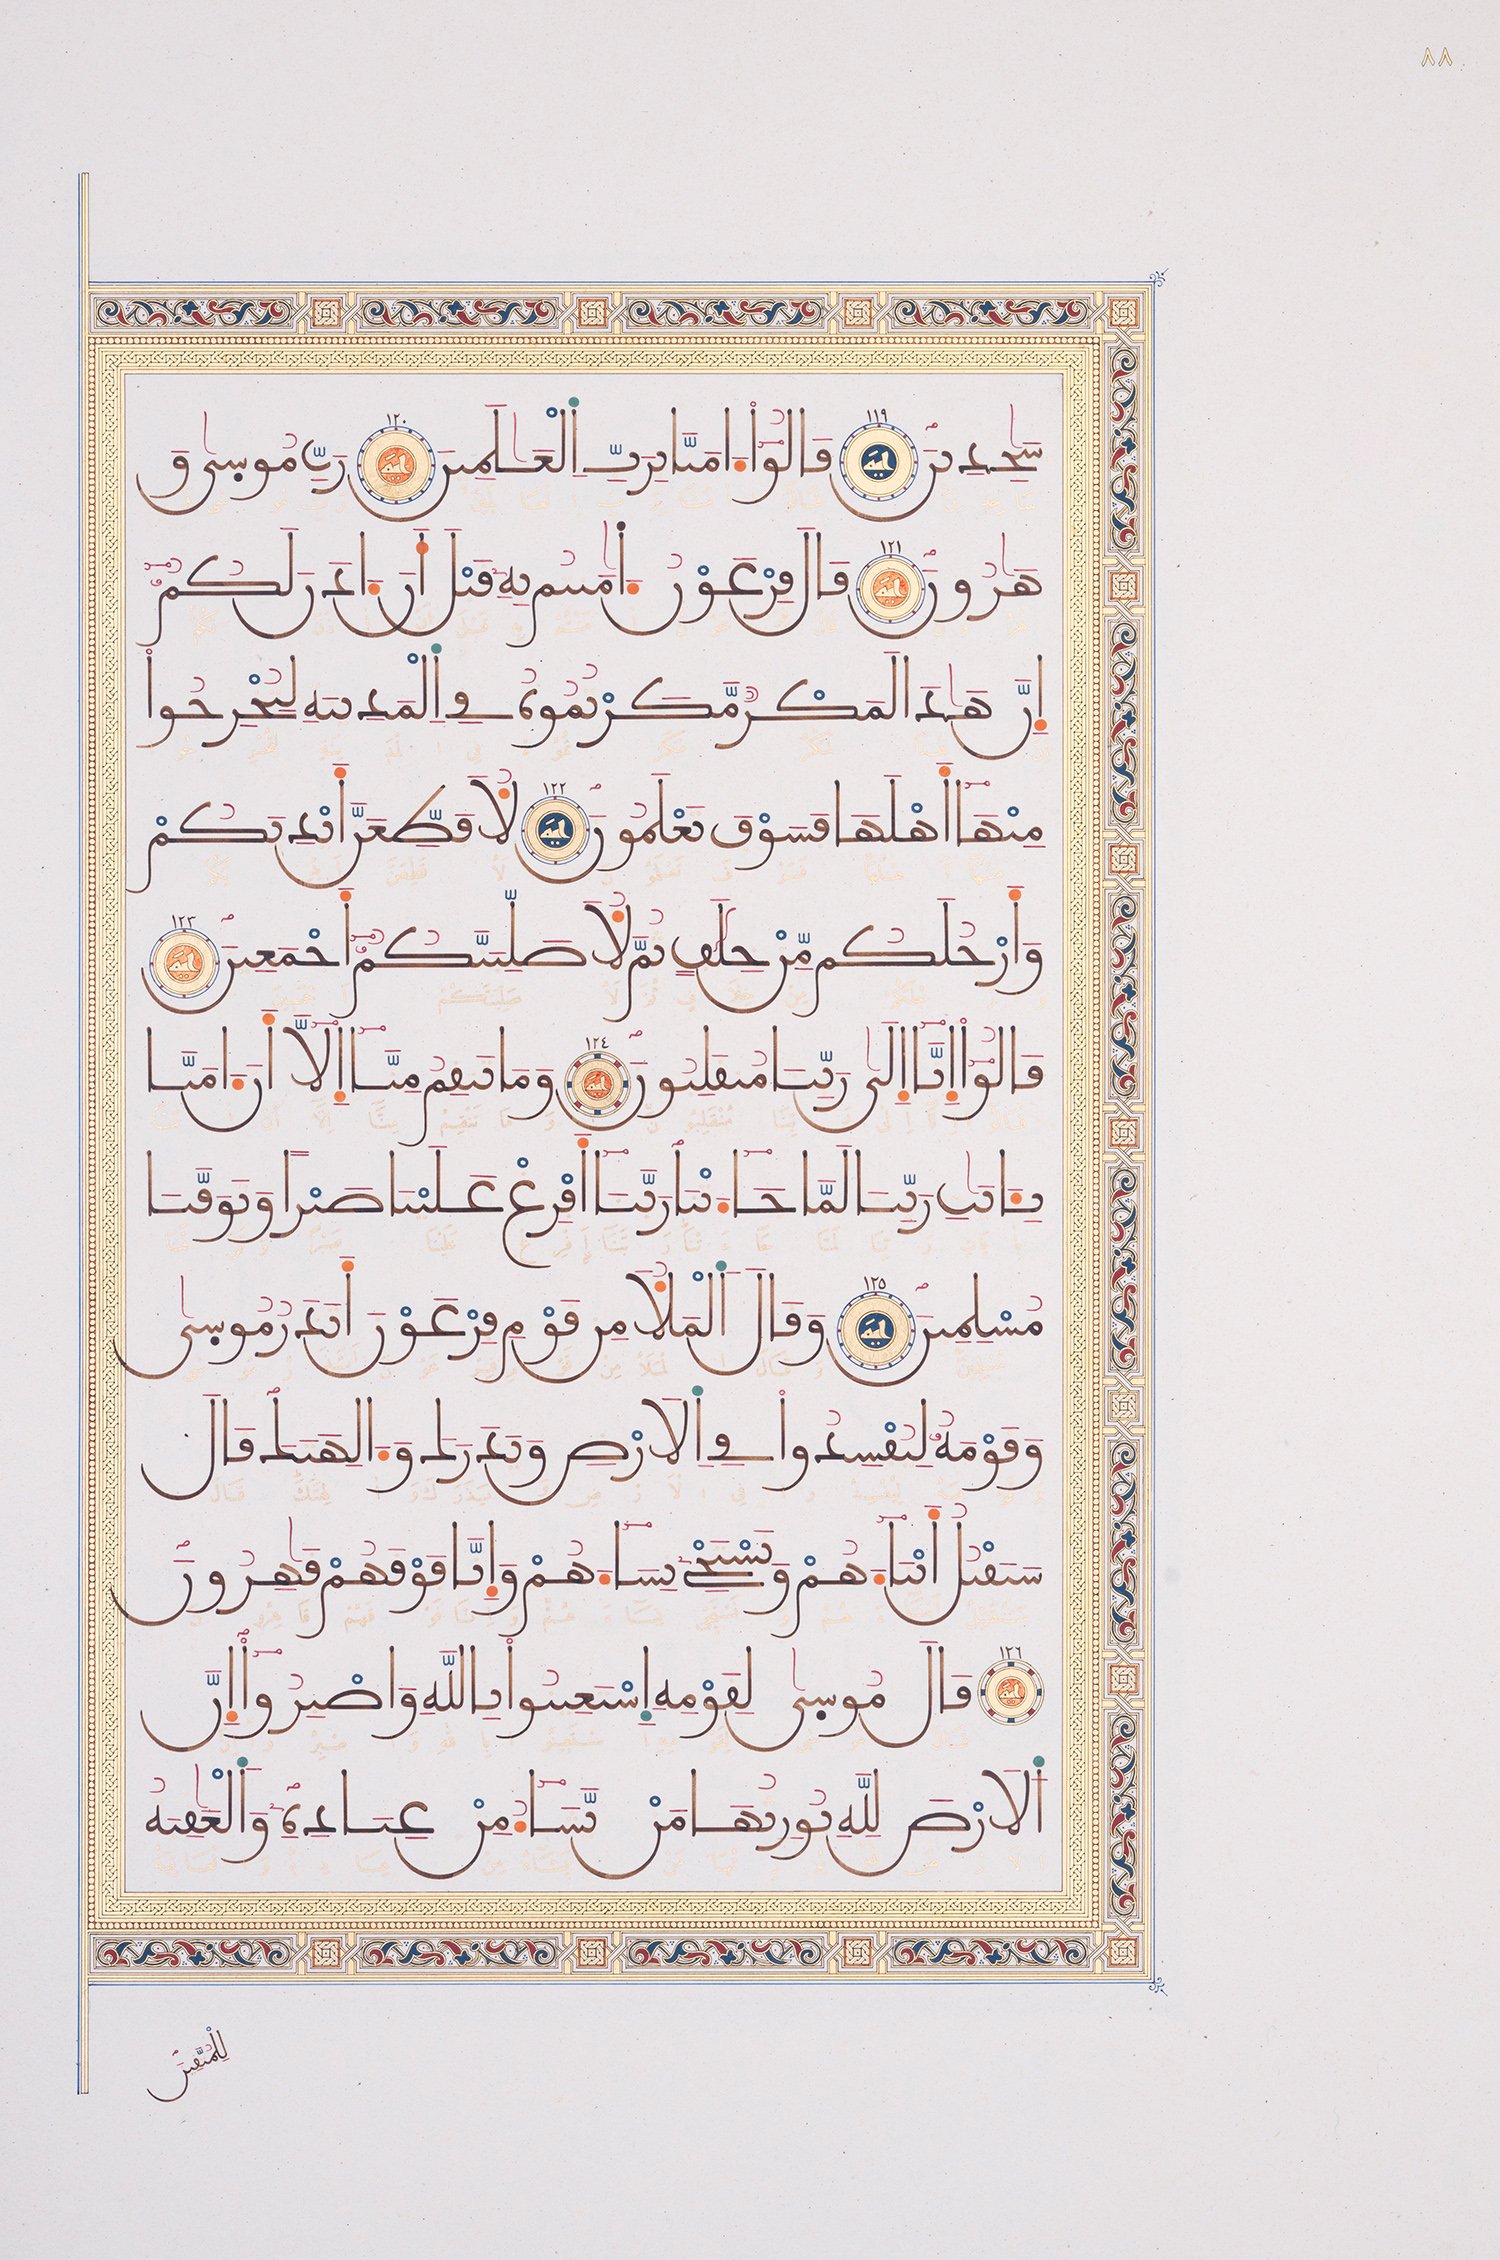 ٨٨
سَٰجِدِينَ ١١٩ قَالُوٓاْ ءَامَنَّا بِرَبِّ ٱلْعَٰلَمِينَ ١٢٠ رَبِّ مُوسَىٰ وَ
هَٰرُونَ ١٢١ قَالَ فِرْعَوْنُ ءَاٰمَنتُم بِهِۦ قَبْلَ أَنْ ءَاذَنَ لَكُمُۥٓ
إِنَّ هَٰذَا لَمَكْرٌ مَّكَرْتُمُوهُ فِي ٱلْمَدِينَةِ لِتُخْرِجُواْ
مِنْهَآ أَهْلَهَا فَسَوْفَ تَعْلَمُونَ ١٢٢ لَأُقَطِّعَنَّ أَيْدِيَكُمْ
وَأَرْجُلَكُم مِّنْ خِلَٰفٍ ثُمَّ لَأُصَلِّبَنَّكُمُۥٓ أَجْمَعِينَ ١٢٣
قَالُوٓاْ إِنَّآ إِلَىٰ رَبِّنَا مُنقَلِبُونَ ١٢٤ وَمَا تَنقِمُ مِنَّآ إِلَّآ أَنَ ءَامَنَّا
بِـَٔايَٰتِ رَبِّنَا لَمَّا جَآءَتْنَا رَبَّنَآ أَفْرِغْ عَلَيْنَا صَبْرًا وَتَوَفَّنَا
مُسْلِمِينَ ١٢٥ وَقَالَ ٱلْمَلَأُ مِن قَوْمِ فِرْعَوْنَ أَتَذَرُ مُوسَىٰ
وَقَوْمَهُۥ لِيُفْسِدُواْ فِي ٱلَارْضِ وَيَذَرَكَ وَءَالِهَتَكَ قَالَ
سَنَقْتُلُ أَبْنَآءَهُمْ وَنَسْتَحْيِۦ نِسَآءَهُمْ وَإِنَّا فَوْقَهُمْ قَٰهِرُونَ
١٢٦ قَالَ مُوسَىٰ لِقَوْمِهِ ٱسْتَعِينُواْ بِاللَّهِ وَاصْبِرُوٓاْ إِنَّ
ٱلَارْضَ لِلَّهِ يُورِثُهَا مَنْ يَّشَآءُ مِنْ عِبَادِهِۦ وَٱلْعَٰقِبَةُ
لِلْمُتَّقِينَ